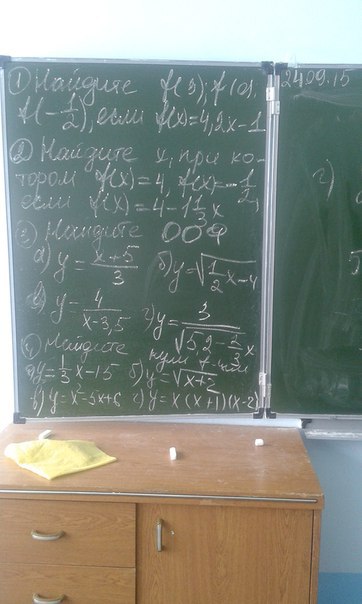 ① Найдите f(3); f(0),
f(-1/2), если f(x)=4,2x-1
② Найдите x, при ко-
тором f(x)=4, f(x)=-1/2,
если f(x)=4-1 1/3 x
③ Найдите ООФ
а) y=(x+5)/3 б) y=√(1/2x-4)
в) y=4/(x-3,5) г) y=3/√(52-2/3x)
④ Найдите нули f-
а) y=1/3x-15 б) y=√(x+2)
в) y=x²-5x+6 г) y=x(x+1)(x-2)
24.09.15
г)